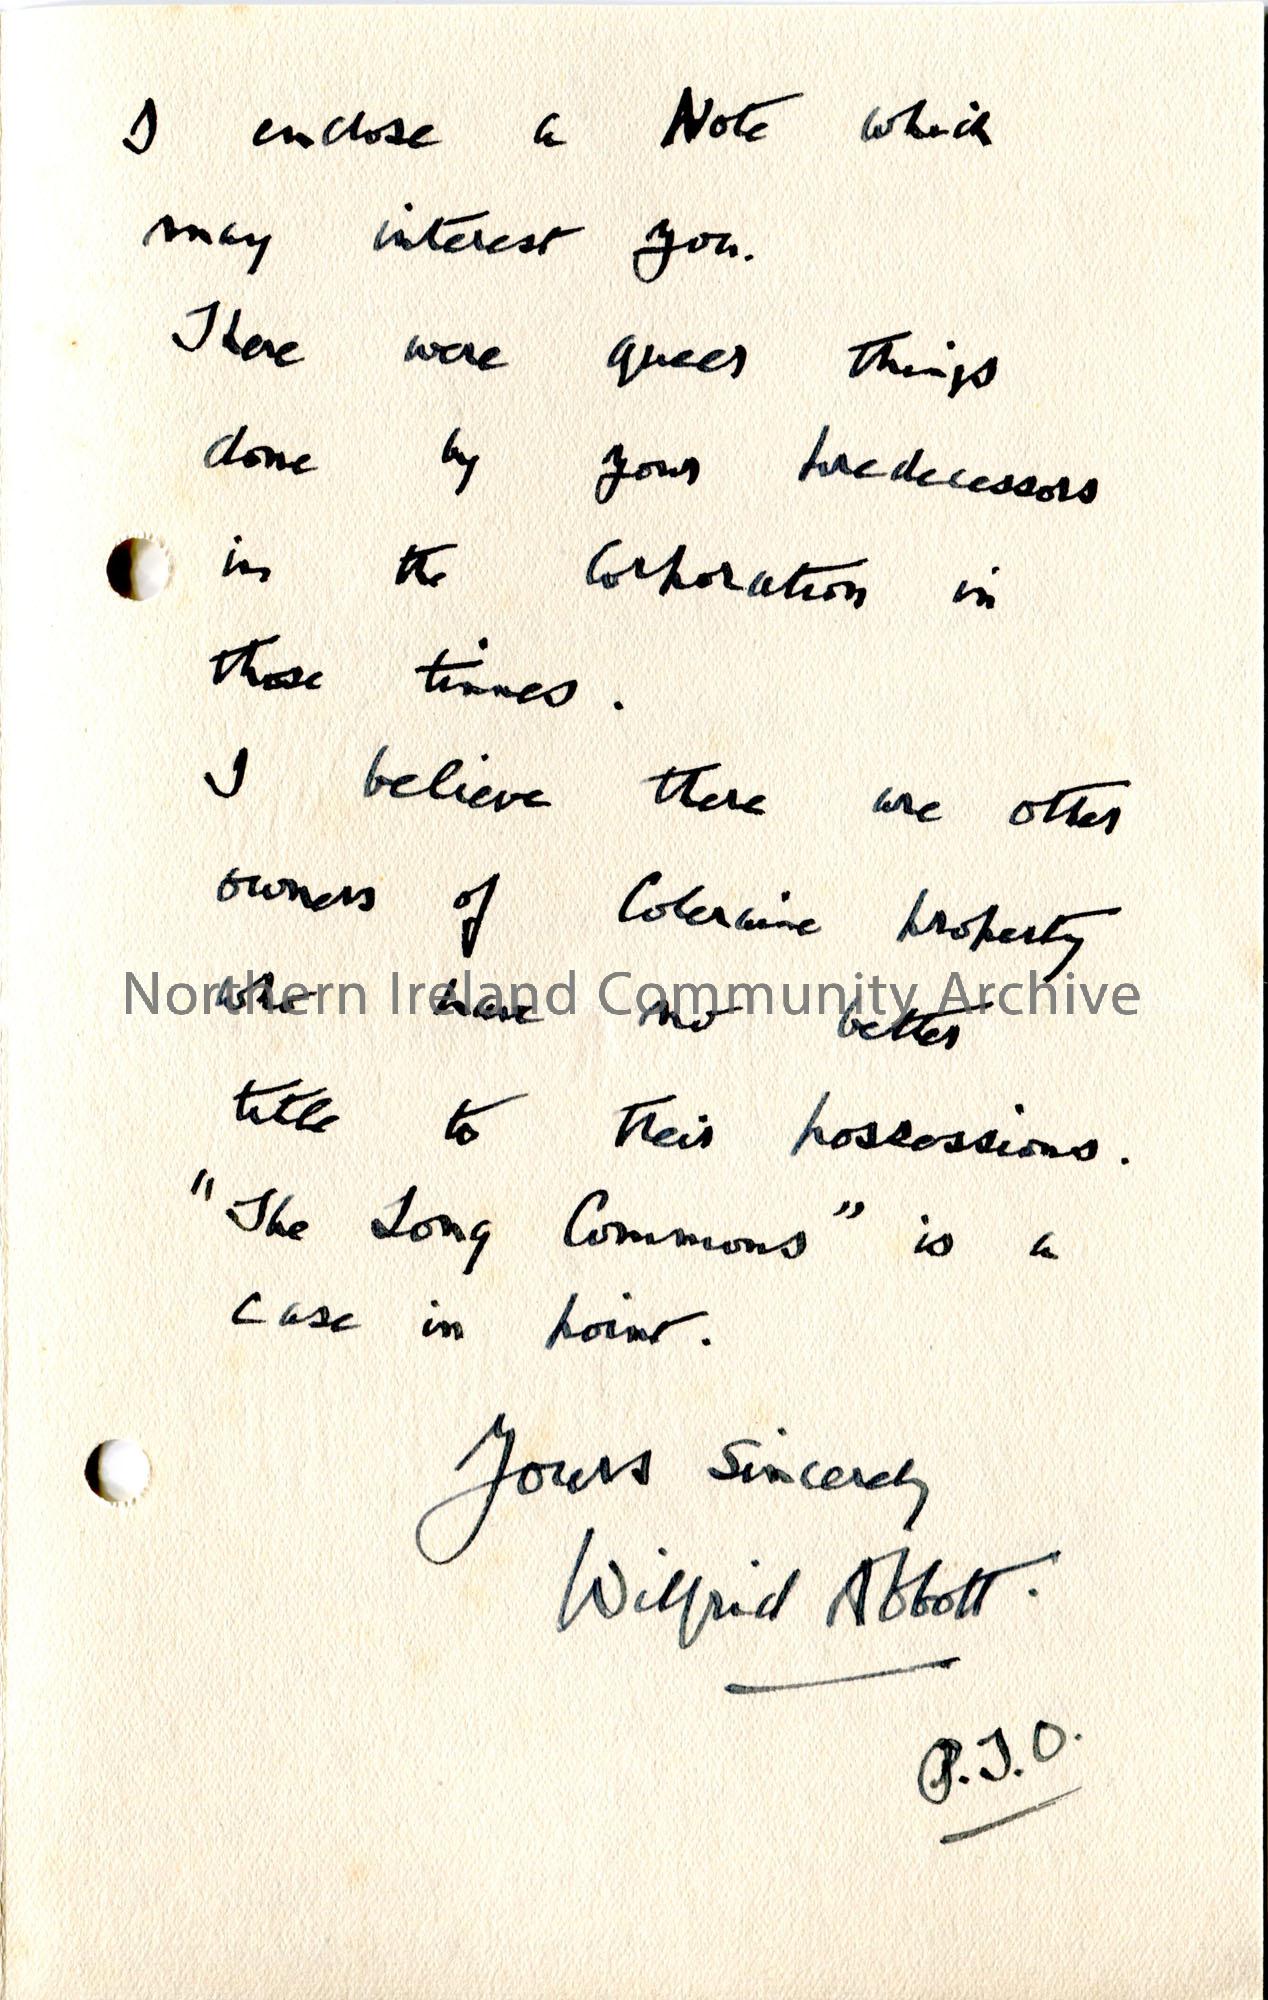 I enclose a Note which
may interest you.
There were queer things
done by your predecessors
in the Corporation in
those times.
I believe there are other
owners of Coleraine property
who have no better
Northern Ireland Community Archive
title to their possessions.
"The Long Commons" is a
case in point.
Yours Sincerely
Wilfrid Abbott.
P.T.O.